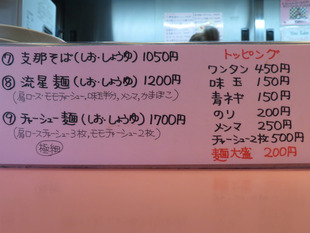 ⑦ 支那そば(しお・しょうゆ) 1050円
⑧ 流星麺(しお・しょうゆ) 1200円
(肩ロース・モモチャーシュー、味玉半分、メンマ、かまぼこ)
⑨ チャーシュー麺(しお・しょうゆ) 1700円
(肩ロースチャーシュー3枚、モモチャーシュー2枚)
極細
トッピング
ワンタン 450円
味玉 150円
青ネギ 150円
のり 200円
メンマ 250円
チャーシュー2枚 500円
麺大盛 200円